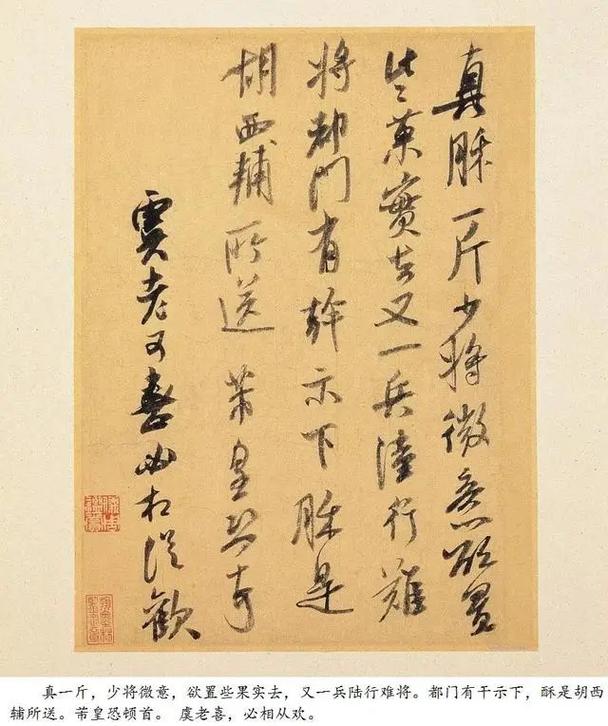 真酥一斤少将微意欲置
些菓實去又一兵陸行難
将都門有幹示下酥是
胡西輔所送芾皇恐頓首
老可喜必相從歡
真一斤，少将微意，欲置些果实去，又一兵陆行难将。都门有干示下，酥是胡西
辅所送。芾皇恐顿首。 虞老喜，必相从欢。